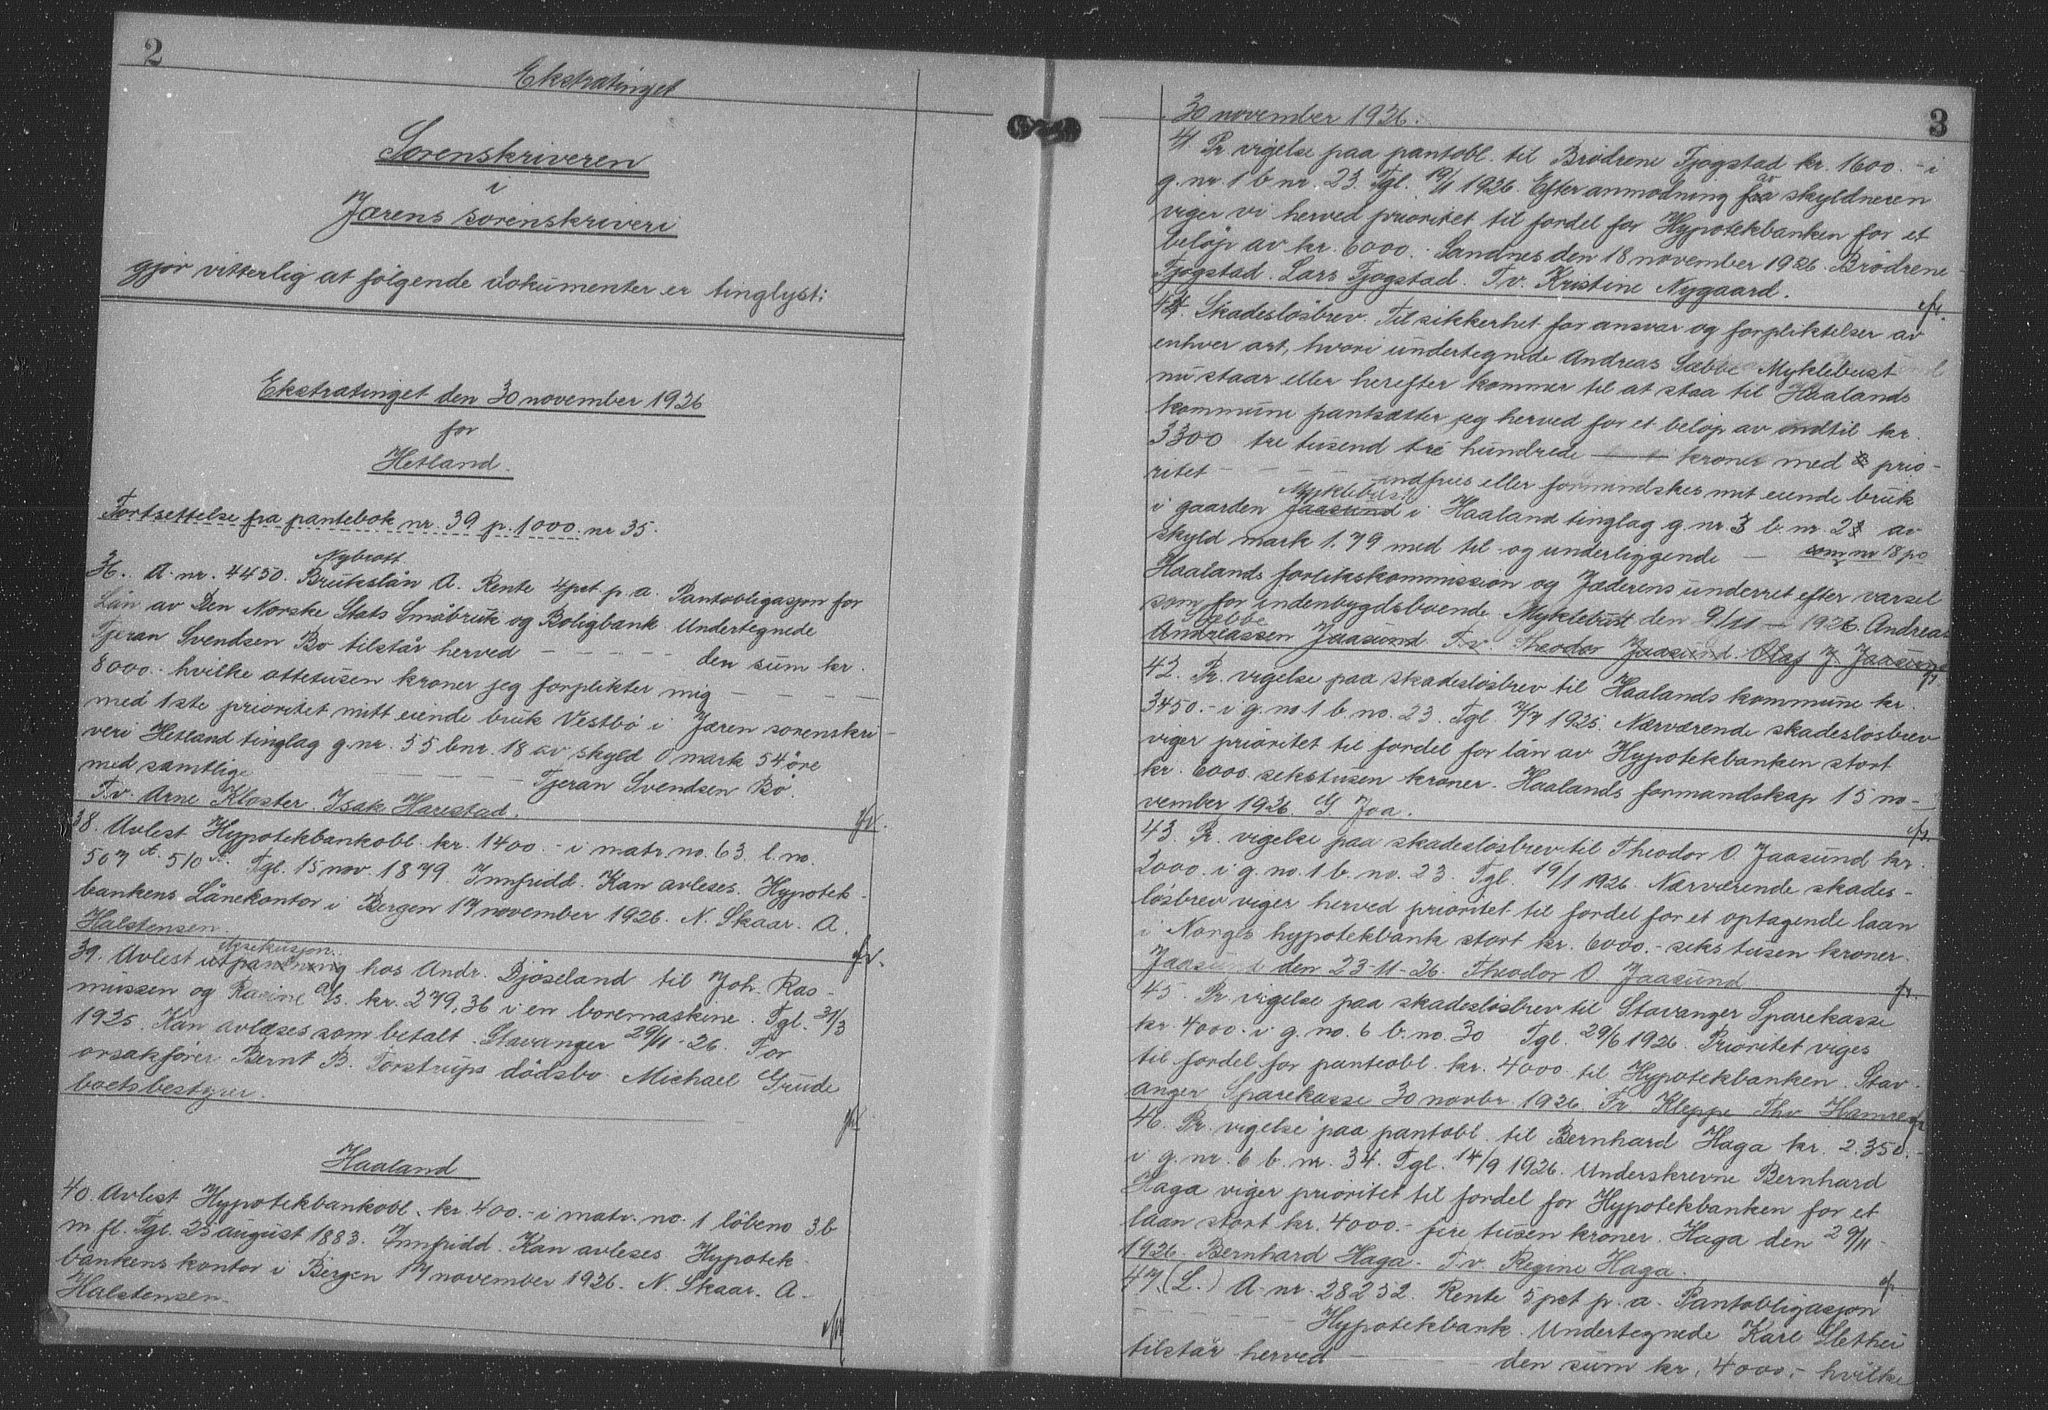 2
Ekstratinget
Sorenskriveren
i
Jærens sorenskriveri
gjør vitterlig at følgende dokumenter er tinglyst:
Ekstratinget den 30 november 1926
for
Hetland.
Fortsettelse fra pantebok nr. 39 p. 1000. nr 35.
Nybrott
36. A. nr. 4450. Brukslån A. Rente 4pct p. a. Pantobligasjon for
Lån av Den Norske Stats Småbruk og Boligbank. Undertegnede
Tjeran Svendsen Bø tilstår herved - - - - - den sum kr.
8000.- hvilke ottetusen kroner jeg forplikter mig - - - -
med 1ste prioritet mitt eiende bruk Vestbø i Jæren sorenskri-
veri Hetland tinglag g.nr. 55 bnr. 18 av skyld 0 mark 54 øre
med samtlige - - - - - - Tjeran Svendsen Bø.
T.v. Arne Kloster. Isak Harestad.
38. Avlest Hypotekbankobl. kr. 1400.- i matr. no. 63. l. no.
507 a. 510 a. Tgl. 15 nov 1879. Innfridd. Kan avleses. Hypotek-
bankens Lånekontor i Bergen 17 november 1926. N. Skaar. A.
Halstensen
39. Avlest utpantning hos Andr. Djøseland til Joh. Ras-
mussen og Racine a/s. kr. 279,36 i en boremaskine. Tgl. 31/3
1925. Kan avlæses som betalt. Stavanger 29/11-26. For
orsakfører Bernt B. Torstrups dødsbo Michael Grude
boetsbestyrer.
Haaland
40. Avlest Hypotekbankobl. kr. 400.- i matr. no. 1 løbeno 3 b
m. fl. Tgl. 25 august 1883. Innfridd. Kan avleses Hypotek-
bankens kontor i Bergen 17 november 1926. N. Skaar. A.
Halstensen
3
30 november 1926.
41 Pr. vigelse paa pantobl. til Brødrene Tjogstad kr. 1600.- i
g. nr. 1 b nr. 23. Tgl. 19/11 1926. Efter anmodning fra av skyldneren
viger vi herved prioritet til fordel for Hypotekbanken for et
beløp av kr. 6000.- Sandnes den 18 november 1926. Brødrene
Tjogstad. Lars Tjogstad. T.v. Kristine Nygaard.
44. Skadesløsbrev. Til sikkerhet for ansvar og forpliktelser av
enhver art, hvori undertegnede Andreas Sæbbe Myklebust
nu staar eller herefter kommer til at staa til Haalands
kommune pantsætter jeg herved for et beløp av indtil kr.
3300 tre tusend tre hundrede kroner med prio-
ritet - - - indfries eller formindskes mit eiende bruk
Myklebust
i gaarden Jaasund i Haaland tinglag g. nr. 3 b. nr. 28 av
skyld mark 1.79 med til- og underliggende - som nr 18 paa
Haalands forlikskommission og Jæderens underret efter varsel
som for indenbygdsboende. Myklebust den 9/11 - 1926. Andreas
Sæbbe
Andreassen Jaasund T.v. Theodor Jaasund. Olaf J. Jaasund
42. Pr. vigelse paa skadesløsbrev til Haalands kommune kr.
3450.- i g. no 1 b. no. 23. Tgl. 7/7 1925. Nærværende skadesløsbrev
viger prioritet til fordel for lån av Hypotekbanken stort
kr. 6000. sekstusen kroner. Haalands formandskap 15 no-
vember 1926. G. Joa.
43. Pr. vigelse paa skadesløsbrev til Theodor O. Jaasund kr.
2000. i g. no. 1 b. no. 23. Tgl. 19/11 1926. Nærværende skades-
løsbrev viger herved prioritet til fordel for et optagende laan
i Norges hypotekbank stort kr. 6000.- seks tusen kroner.
Jaasund den 23-11-26. Theodor O. Jaasund.
45. Pr. vigelse paa skadesløsbrev til Stavanger Sparekasse
kr. 4000.- i g. no. 6 b. no. 30 Tgl. 29/6 1926. Prioritet viges
til fordel for panteobl. kr. 4000. til Hypotekbanken. Stav-
anger Sparekasse 30 novbr. 1926. Fr Kleppe Thv Hamre
46. Pr. vigelse paa pantobl. til Bernhard Haga kr. 2.350.-
i g. nr. 6 b. nr. 34. Tgl. 14/9 1926. Underskrevne Bernhard
Haga viger prioritet til fordel for Hypotekbanken for et
laan stort kr. 4000.- fire tusen kroner. Haga den 29/11-
1926. Bernhard Haga. T.v. Regine Haga.
47. (L.) A. nr. 28252. Rente 5 pct p. a. Pantobligasjon
- - - Hypotekbank. Undertegnede Karl Slethei
tilstår herved - - - den sum kr. 4000.- hvilke